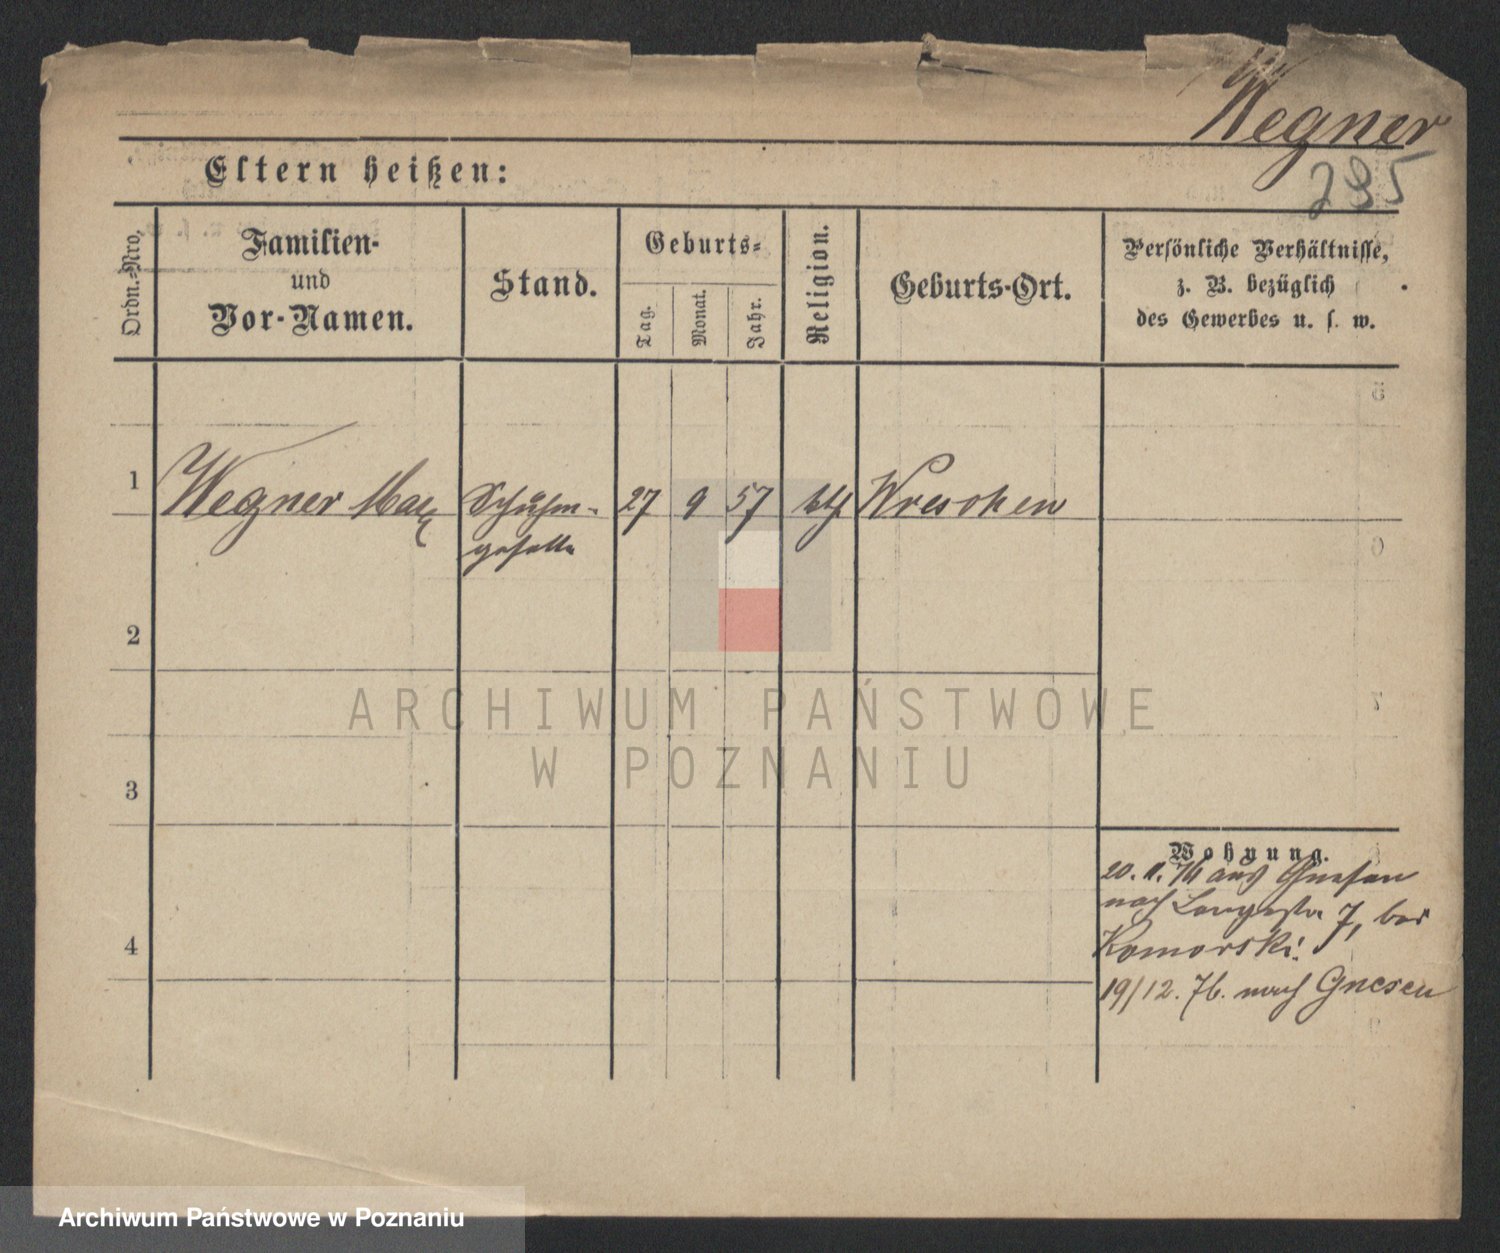 Wegner
295
Eltern heißen:
Ordn.-Nro.
Familien-
und
Vor-Namen.
Stand.
Geburts-
Tag.
Monat.
Jahr.
Religion.
Geburts-Ort.
Persönliche Verhältnisse,
z. B. bezüglich
des Gewerbes u. s. w.
1 Wegner Max Schuhm- 27 9 57 Wreschen
geselle
2
ARCHIWUM PAŃSTWOWE
W POZNANIU
3
Wohnung.
20. 11. 76 aus Gnesen
nach Langestr 7, bei
Komorski.
4
19/12. 76. nach Gnesen
Archiwum Państwowe w Poznaniu